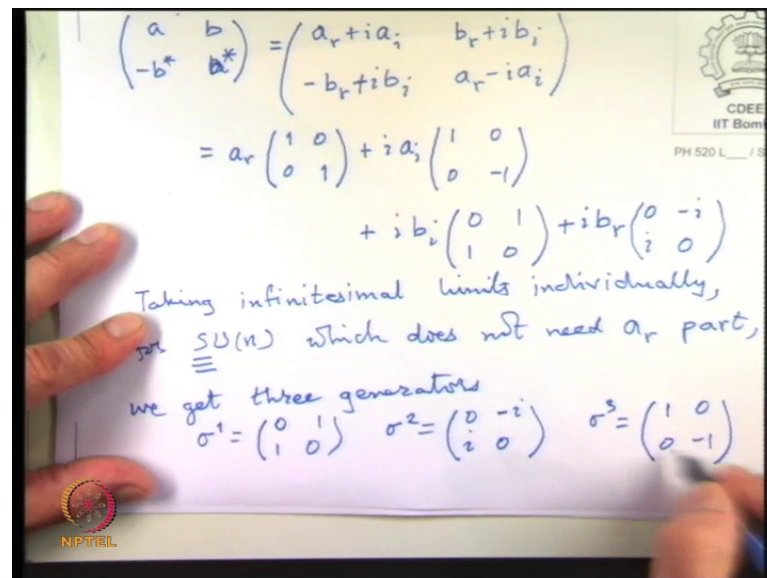 ( a b ; -b* a* ) = ( a_r + i a_i b_r + i b_i ; -b_r + i b_i a_r - i a_i )
= a_r ( 1 0 ; 0 1 ) + i a_i ( 1 0 ; 0 -1 )
+ i b_i ( 0 1 ; 1 0 ) + i b_r ( 0 -i ; i 0 )
Taking infinitesimal limits individually,
for SU(n) which does not need a_r part,
we get three generators
σ^1 = ( 0 1 ; 1 0 ) σ^2 = ( 0 -i ; i 0 ) σ^3 = ( 1 0 ; 0 -1 )
CDEE
IIT Bom
PH 520 L___ / S
NPTEL